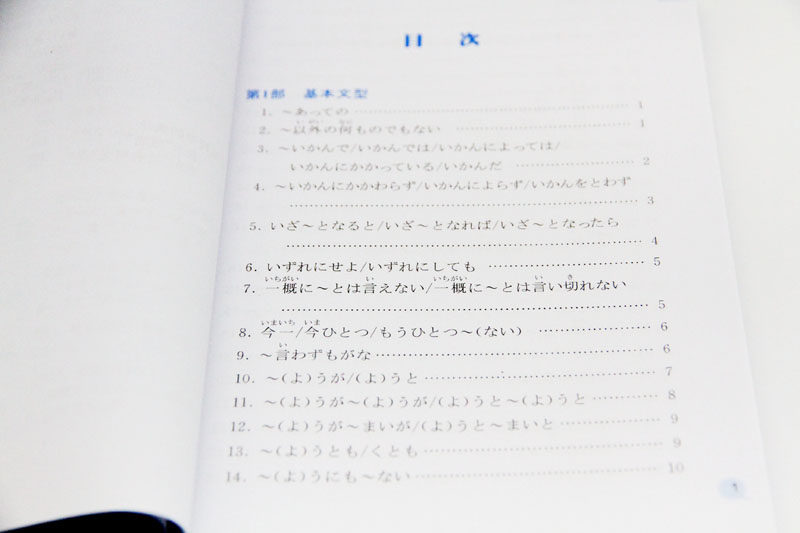 目 次
第1部 基本文型
1. ～あっての………………………………………… 1
2. ～以外の何ものでもない ………………………… 1
3. ～いかんで/いかんでは/いかんによっては/
いかんにかかっている/いかんだ ……………… 2
4. ～いかんにかかわらず/いかんによらず/いかんをとわず
………………………………………………… 3
5. いざ～となると/いざ～となれば/いざ～となったら
………………………………………………… 4
6. いずれにせよ/いずれにしても …………………… 5
いちがい い いちがい い き
7. 一概に～とは言えない/一概に～とは言い切れない
………………………………………………… 5
いまいち いま
8. 今一/今ひとつ/もうひとつ～(ない) …………… 6
い
9. ～言わずもがな…………………………………… 6
10. ～(よ)うが/(よ)うと…………………………… 7
11. ～(よ)うが～(よ)うが/(よ)うと～(よ)うと………… 8
12. ～(よ)うが～まいが/(よ)うと～まいと…………… 9
13. ～(よ)うとも/くとも……………………………… 9
14. ～(よ)うにも～ない……………………………… 10
1